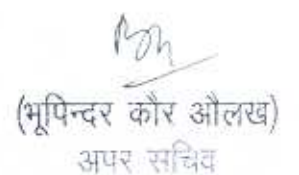 (भूपिन्दर कौर औलख)
अपर सचिव